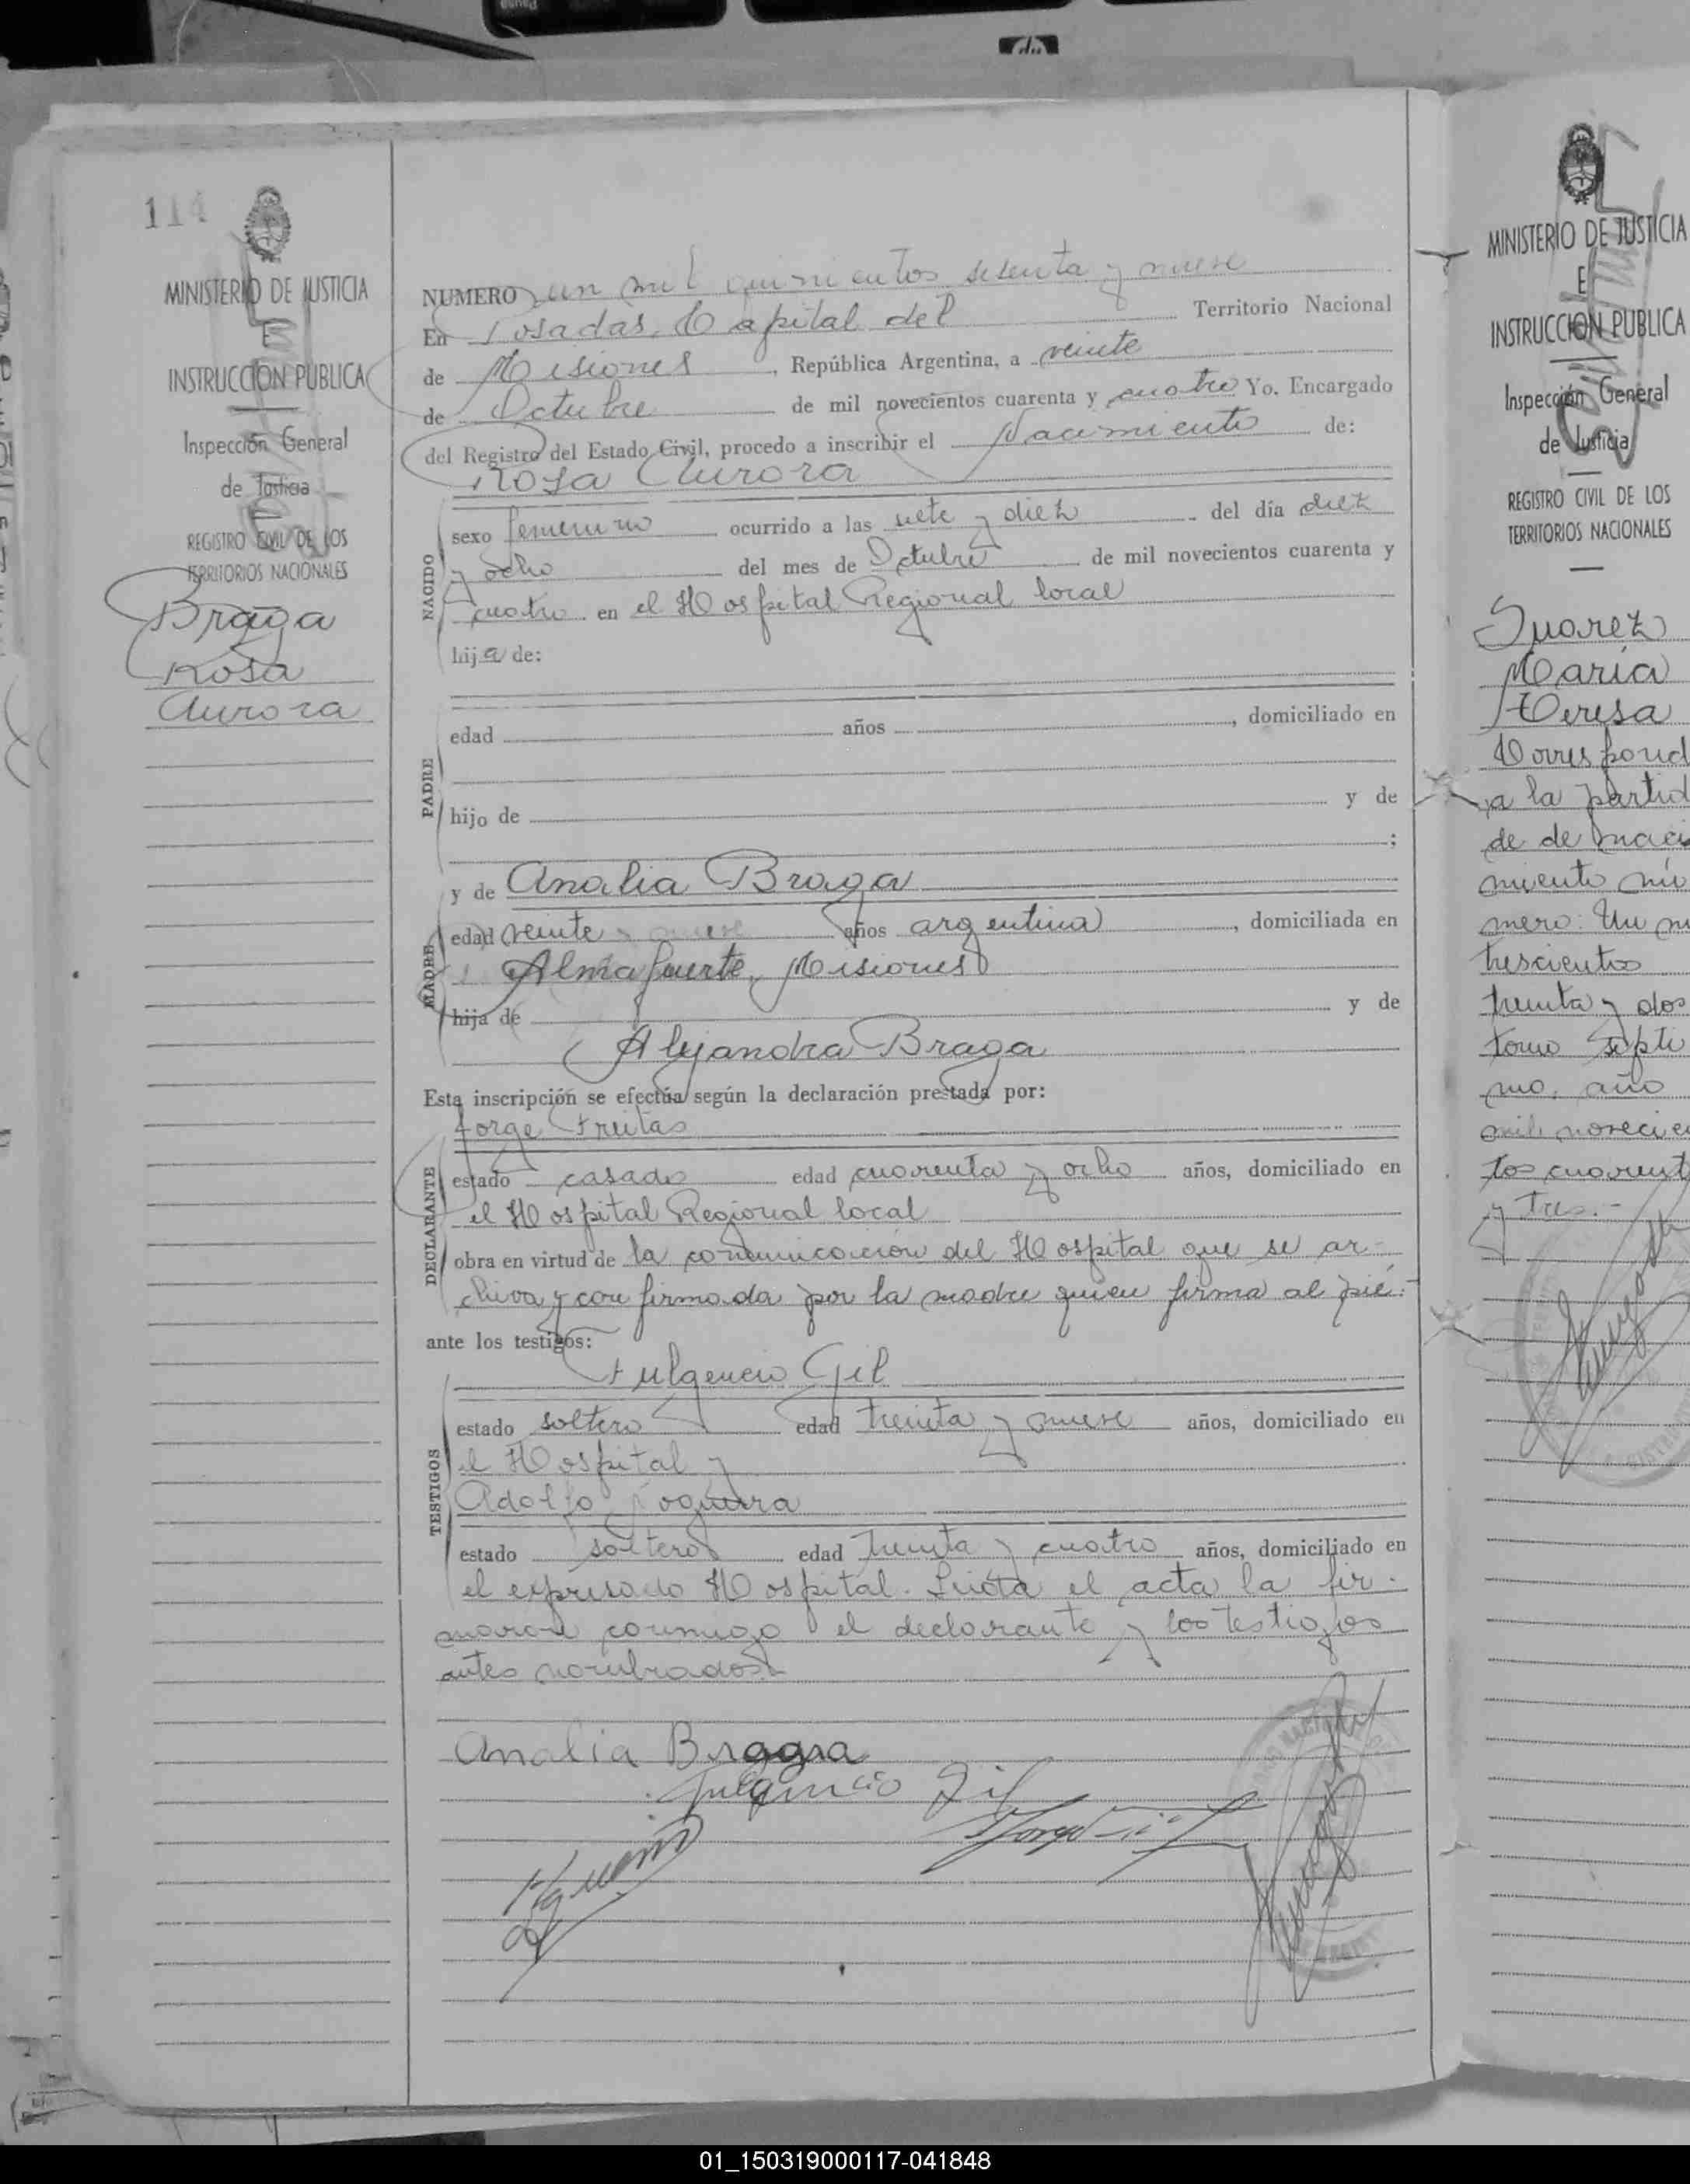 114
MINISTERIO DE JUSTICIA
E
INSTRUCCION PUBLICA
Inspección General
de Justicia
REGISTRO CIVIL DE LOS
TERRITORIOS NACIONALES
Braga
Rosa
Aurora
NUMERO un mil quinientos setenta y nueve
En Posadas, Capital del Territorio Nacional
de Misiones, República Argentina, a veinte
de Octubre de mil novecientos cuarenta y cuatro Yo. Encargado
del Registro del Estado Civil, procedo a inscribir el Nacimiento de:
Rosa Aurora
NACIDO
sexo femenino ocurrido a las siete y diez del día diez
y ocho del mes de Octubre de mil novecientos cuarenta y
cuatro en el Hospital Regional local
hija de:
PADRE
edad años , domiciliado en
hijo de y de
;
MADRE
y de Analia Braga
edad veinte y nueve años argentina , domiciliada en
Almafuerte, Misiones
hija de y de
Alejandra Braga
Esta inscripción se efectúa según la declaración prestada por:
Jorge Freitas
DECLARANTE
estado casado edad cuarenta y ocho años, domiciliado en
el Hospital Regional local
obra en virtud de la comunicación del Hospital que se ar-
chiva y con firmada por la madre quien firma al pié.-
ante los testigos:
Fulgencio Gil
TESTIGOS
estado soltero edad treinta y nueve años, domiciliado en
el Hospital y
Adolfo Noguera
estado soltero edad treinta y cuatro años, domiciliado en
el expresado Hospital. Leida el acta la fir-
maron conmigo el declarante y los testigos
antes nombrados
Analia Bragga
Fulgencio Gil
MINISTERIO DE JUSTICIA
E
INSTRUCCION PUBLICA
Inspección General
de Justicia
REGISTRO CIVIL DE LOS
TERRITORIOS NACIONALES
Suarez
Maria
Teresa
Corres pond
a la partid
de de naci
miento nú
mero: Un m
trescientos
treinta y dos
tomo septi
mo, año
mil novecien
tos cuarent
y Tres.-
01_150319000117-041848